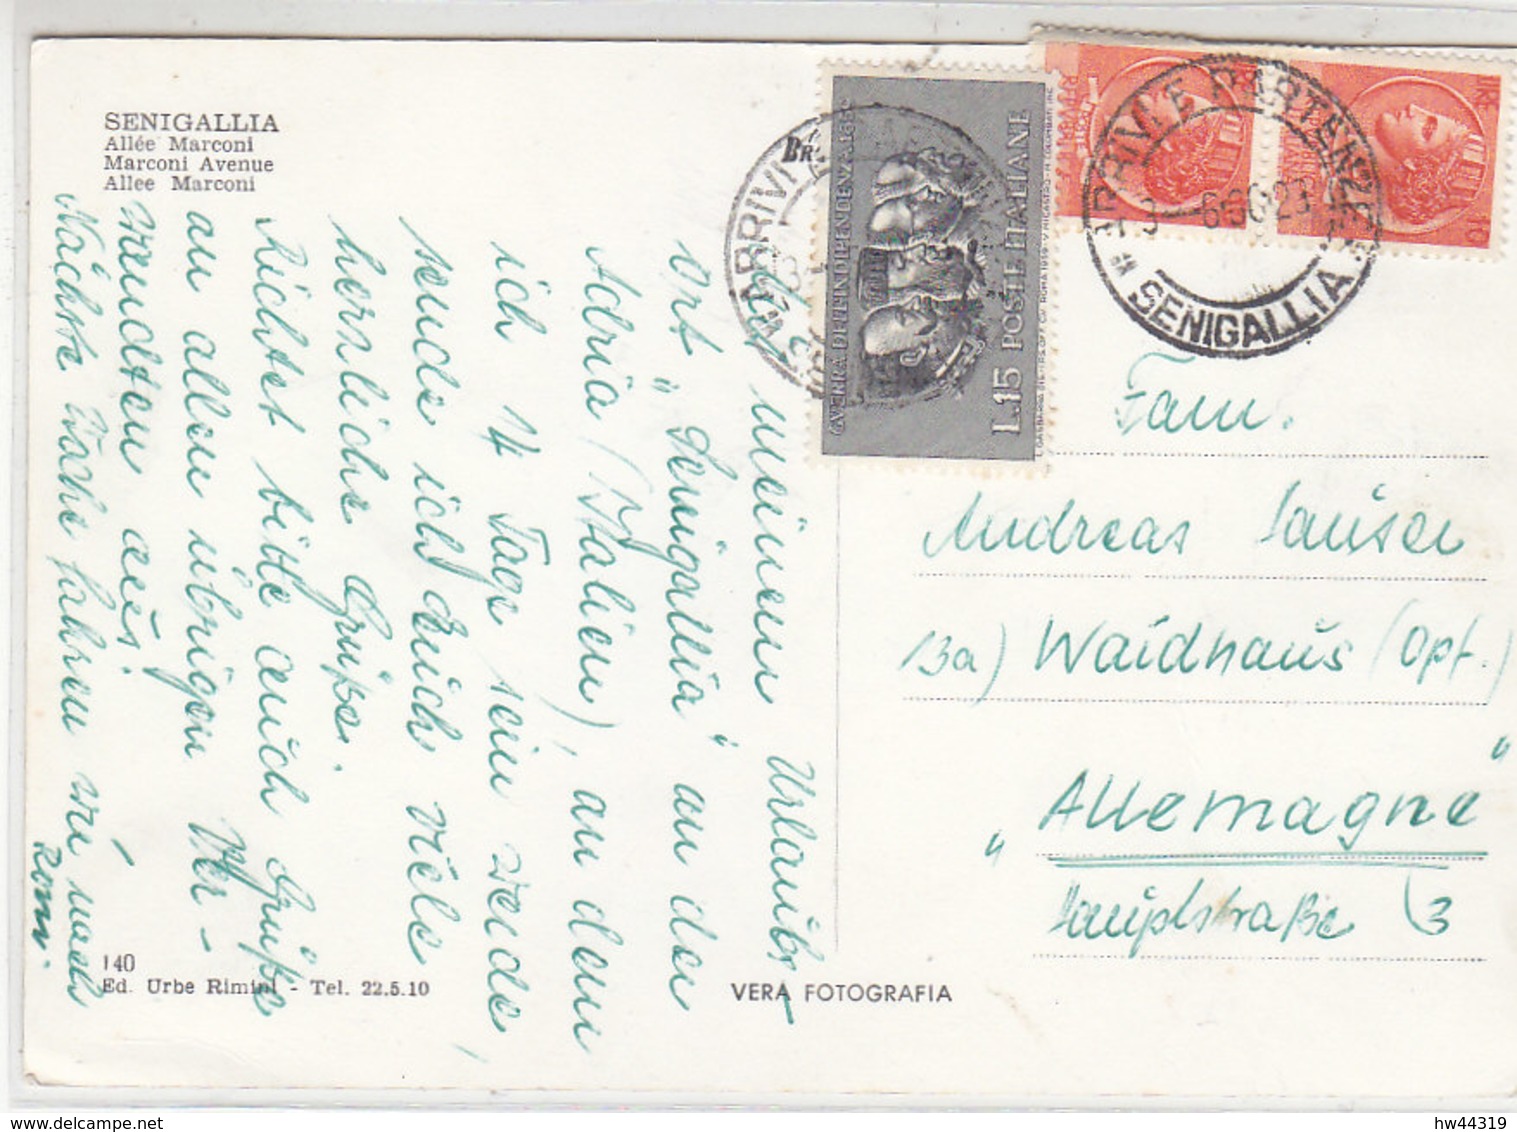 SENIGALLIA
Allée Marconi
Marconi Avenue
Allee Marconi
Aus meinem Urlaubs-
ort "Senigallia" an der
Adria (Italien), an dem
ich 14 Tage sein werde,
sende ich Euch viele
herzliche Grüße.
Richtet bitte auch Grüße
an allen übrigen Ver-
wandten aus!
Nächste Woche fahren wir nach
Rom.
140
Ed. Urbe Rimini - Tel. 22.5.10
VERA FOTOGRAFIA
GVERRA DELL'INDIPENDENZA
L.15 POSTE ITALIANE
ARRIVI E PARTENZE
SENIGALLIA
Fam.
Andreas
13a) Waidhaus (Opf.)
"Allemagne"
Hauptstraße 3
hw44319